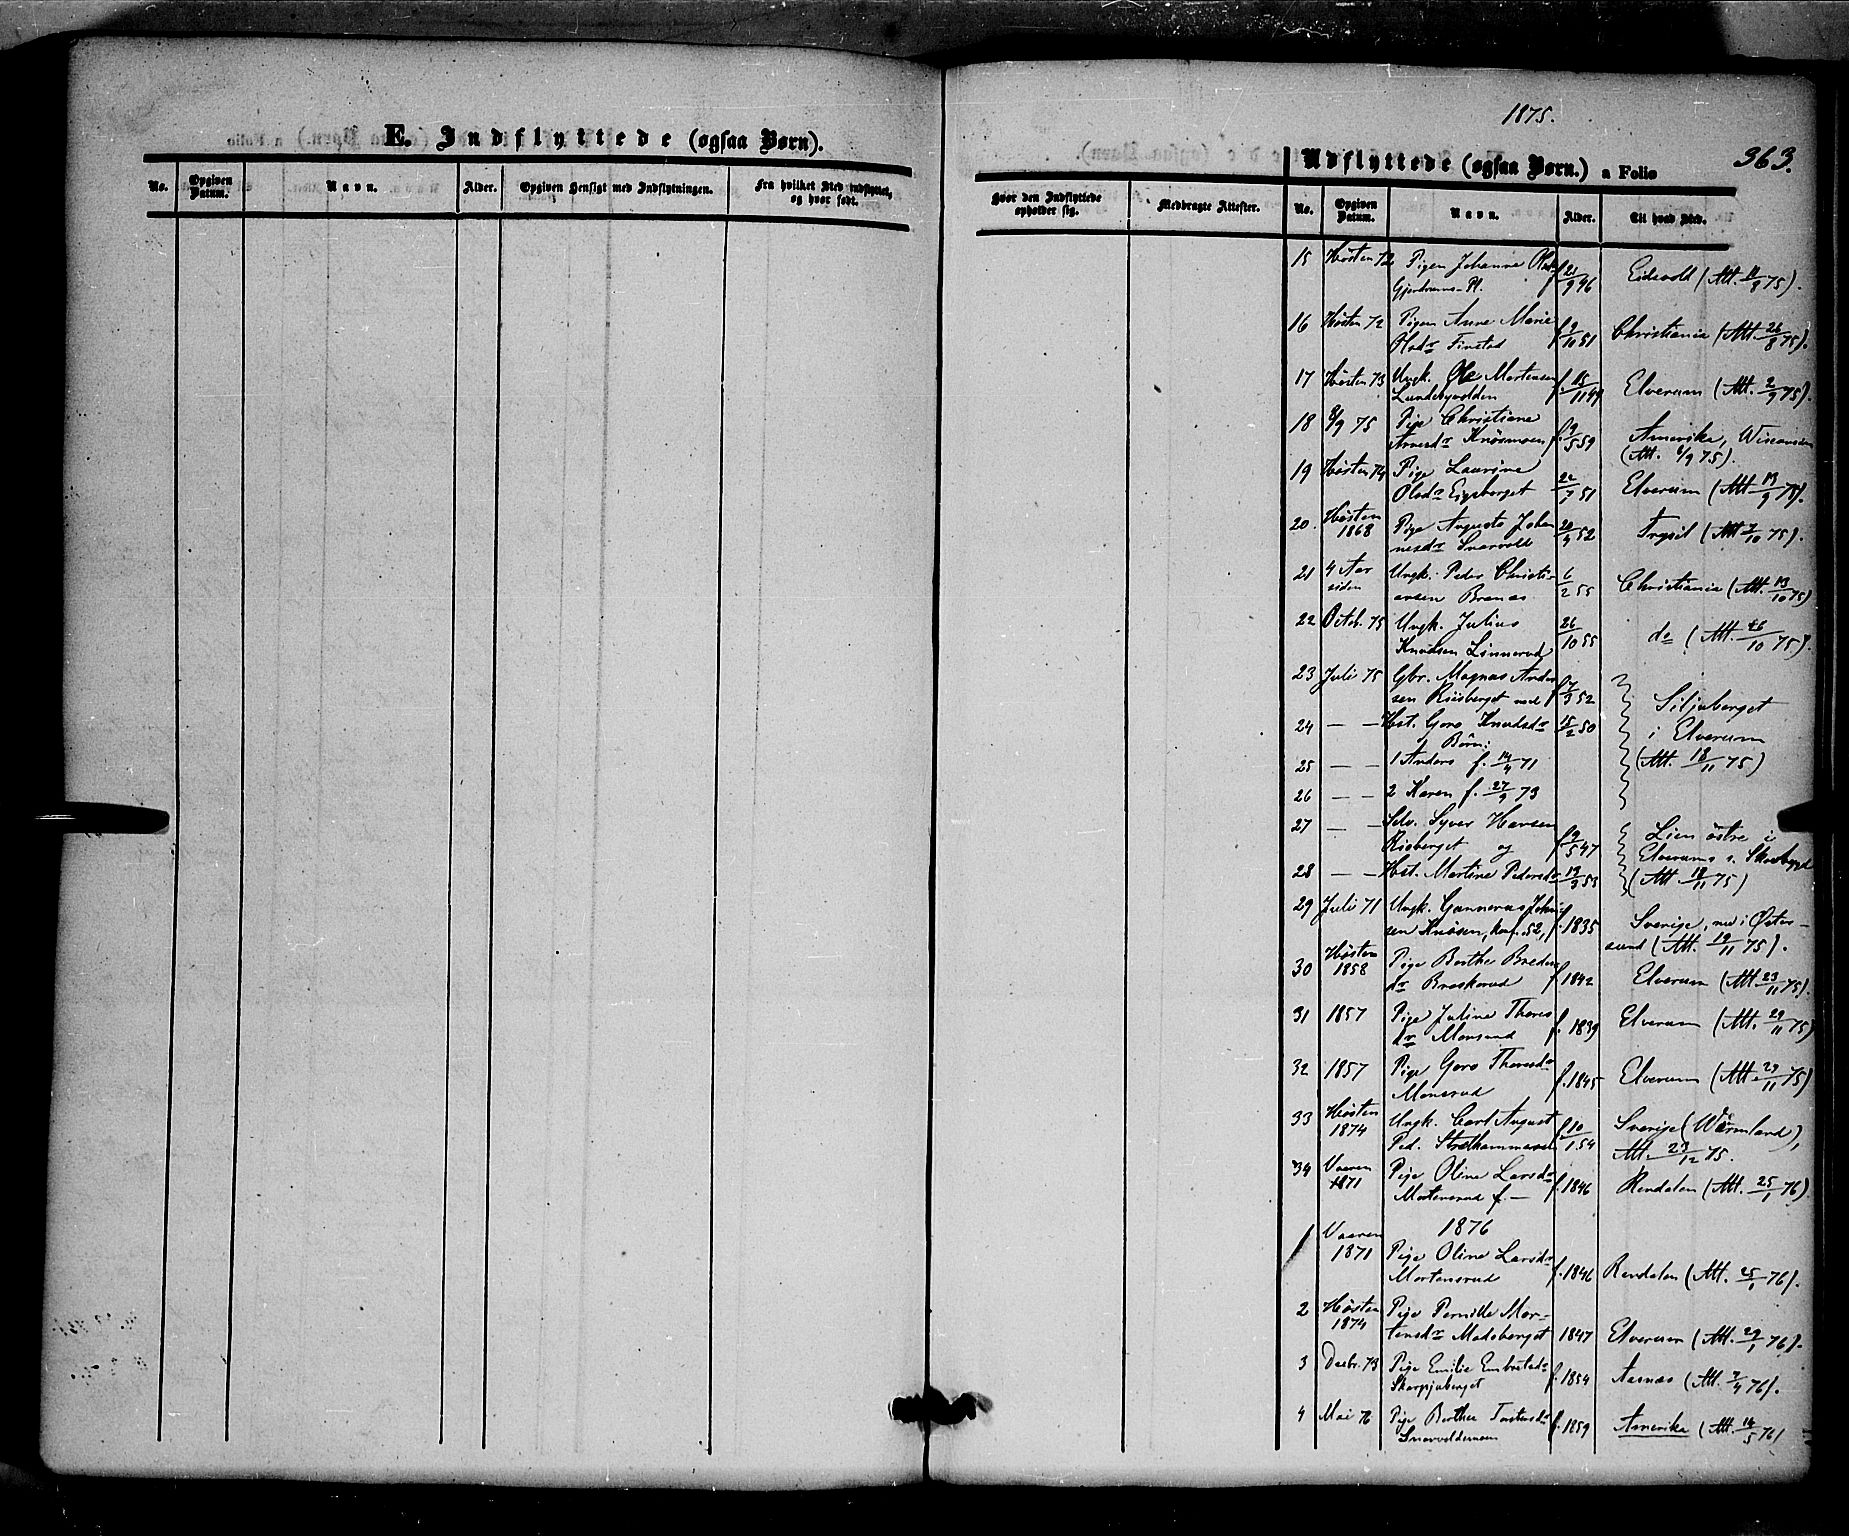 E. Indflyttede (ogsaa Børn).
No. Opgiven Datum. Navn. Alder. Opgiven Hensigt med Indflytningen. Fra hvilket Sted indflyttet, og hvor født.
1875.
Udflyttede (ogsaa Børn.) a Folio 363.
Hvor den Indflyttede opholder sig. Medbragte Attester. No. Opgiven Datum. Navn. Alder. Til hvad Sted.
15 Høsten 72 Pigen Johanne Olsdr f 21/9 46 Eidsvold (Att. 11/8 75).
Gjerdrums-Pl.
16 Høsten 72 Pigen Anne Marie
Olsdr Finstad f 9/10 51 Christiania (Att. 26/8 75).
17 Høsten 73 Ungk. Ole Mortensen f. 15/11 49 Elverum (Att. 2/9 75).
18 8/9 75 Pige Christiane
Arnesdr Knösmoen f. 9/5 59 Amerika, Wisconsin
(Att. 6/9 75).
19 Høsten 74 Pige Laurine
Olsdr 22/7 51 Elverum (Att 13/9 75).
20. Høsten
1868 Pige Augusta Johan
nesdr Snarvold 20/4 52 Trysil (Att 7/10 75).
21 4 Aar
siden Ungk. Peder Christi-
ansen Brenas 6/2 55 Christiania (Att. 13/10 75)
22 Octob. 75 Ungk. Julius
Knudsen Linnerud 26/10 55 do (Att. 26/10 75).
23 Juli 75 Gbr. Magnus Ander
sen Riisberget med f 7/3 52 Siljuberget
24 — — Hst. Goro Knudsdr 15/2 50 i Elverum
og Børn:
25 — — 1 Anders f. 14/4 71 (Att. 18/11 75)
26 — — 2 Karen f. 27/9 73
27 — — Selv. Syver Hansen
Risberget og f 9/5 47 Lien östre i
Elverums s. Skovbygd
28 — — Hst. Martine Pedersdr 13/3 53 (Att 18/11 75)
29 Juli 71 Ungk. Gunnerus Johan
sen Knösen, konf. 52, f. 1835 Sverige, nu i Øster-
sund (Att. 19/11 75).
30 Høsten
1858 Pige Berthe Breden
dr Braskerud f 1842 Elverum (Att. 23/11 75).
31 1857 Pige Juline Thores
dr Monsrud f. 1839 Elverum (Att. 29/11 75)
32 1857 Pige Goro Thoresdr
Monsrud f. 1845 Elverum (Att. 29/11 75)
33 Høsten
1874 Ungk. Carl August
Ped. f 10/1 54 Sverige (Wermland),
Att. 23/12 75.
34 Vaaren
1871 Pige Oline Larsdr
Mortensrud f — f. 1846 Rendalen (Att. 25/1 76).
1876
1 Vaaren
1871 Pige Oline Larsdr
Mortensrud f. 1846 Rendalen (Att. 25/1 76).
2 Høsten
1874 Pige Pernille Mor-
tensdr Madsberget 1847 Elverum (Att. 29/1 76).
3 Decbr. 73 Pige Emilie Embretsdr
Skarpjuberget f. 1854 Aasnæs (Att. 7/4 76).
4 Mai 76 Pige Berthe Torstensdr
Snarvoldsmoen f. 1859 Amerika (Att. 14/5 76)